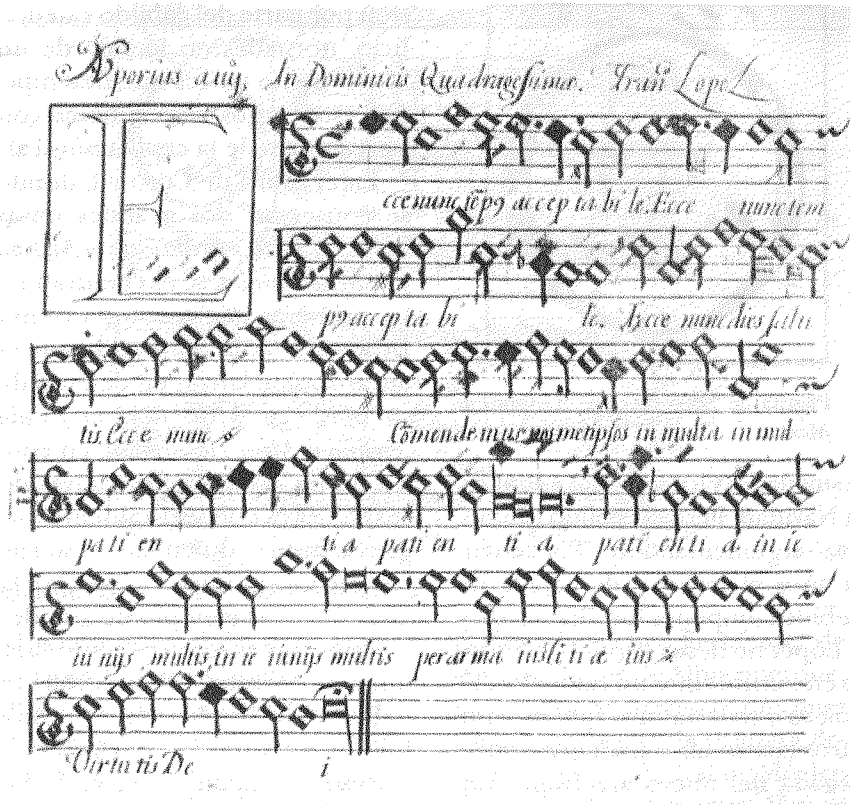 In Dominicis Quadragessimæ. Fran Lopez
E
cce nunc accep ta bi le. Ecce nunc tem
p9 accep ta bi le. Ecce nunc dies salu
tis. Ecce nunc Comendemus nosmetipsos in multa in mul
pa ti en ti a pati en ti a pati en ti a in ie
iu nijs multis, in ie iunijs multis per arma iusti ti æ ius
Virtu tis De i